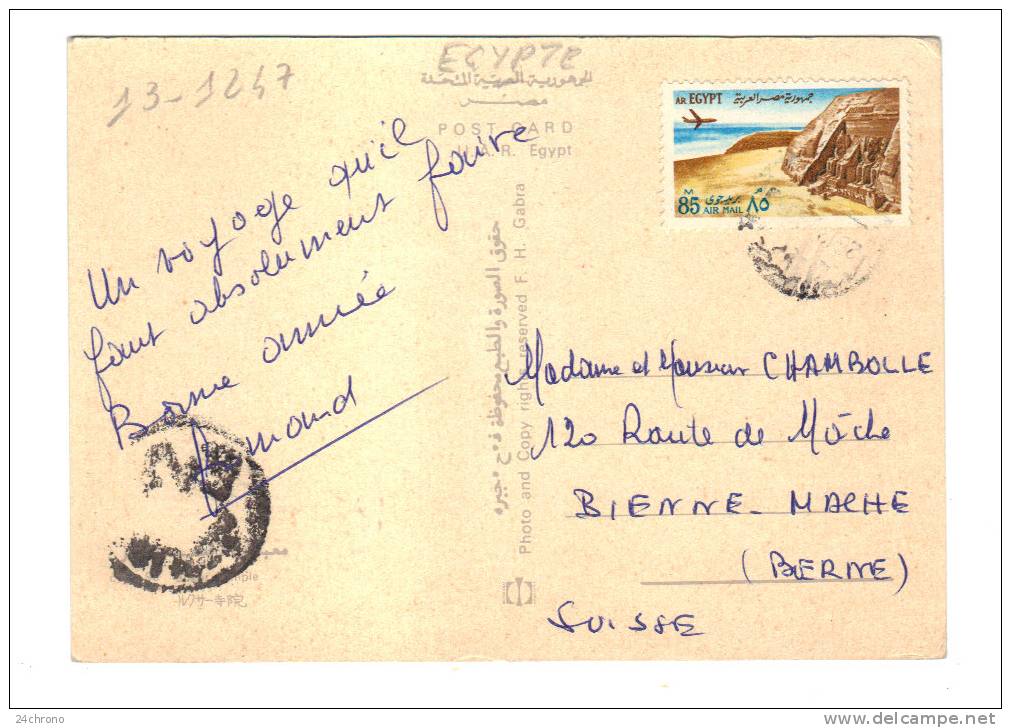 13-1247
EGYPTE
الجمهورية العربية المتحدة
مصر
POST CARD
U.A.R. Egypt
AR EGYPT جمهورية مصر العربية
M
85 AIR MAIL ٨٥
بريد جوى م
Un voyage qu'il
faut absolument faire
Bonne année
Armand
حقوق الصورة والطبع محفوظة ف٠ح٠جبره
Photo and Copy right reserved F. H. Gabra
Madame et Monsieur CHAMBOLLE
120 Route de Mâche
BIENNE-MACHE
(BERNE)
SUISSE
ルクサー寺院
24chrono
delcampe.net